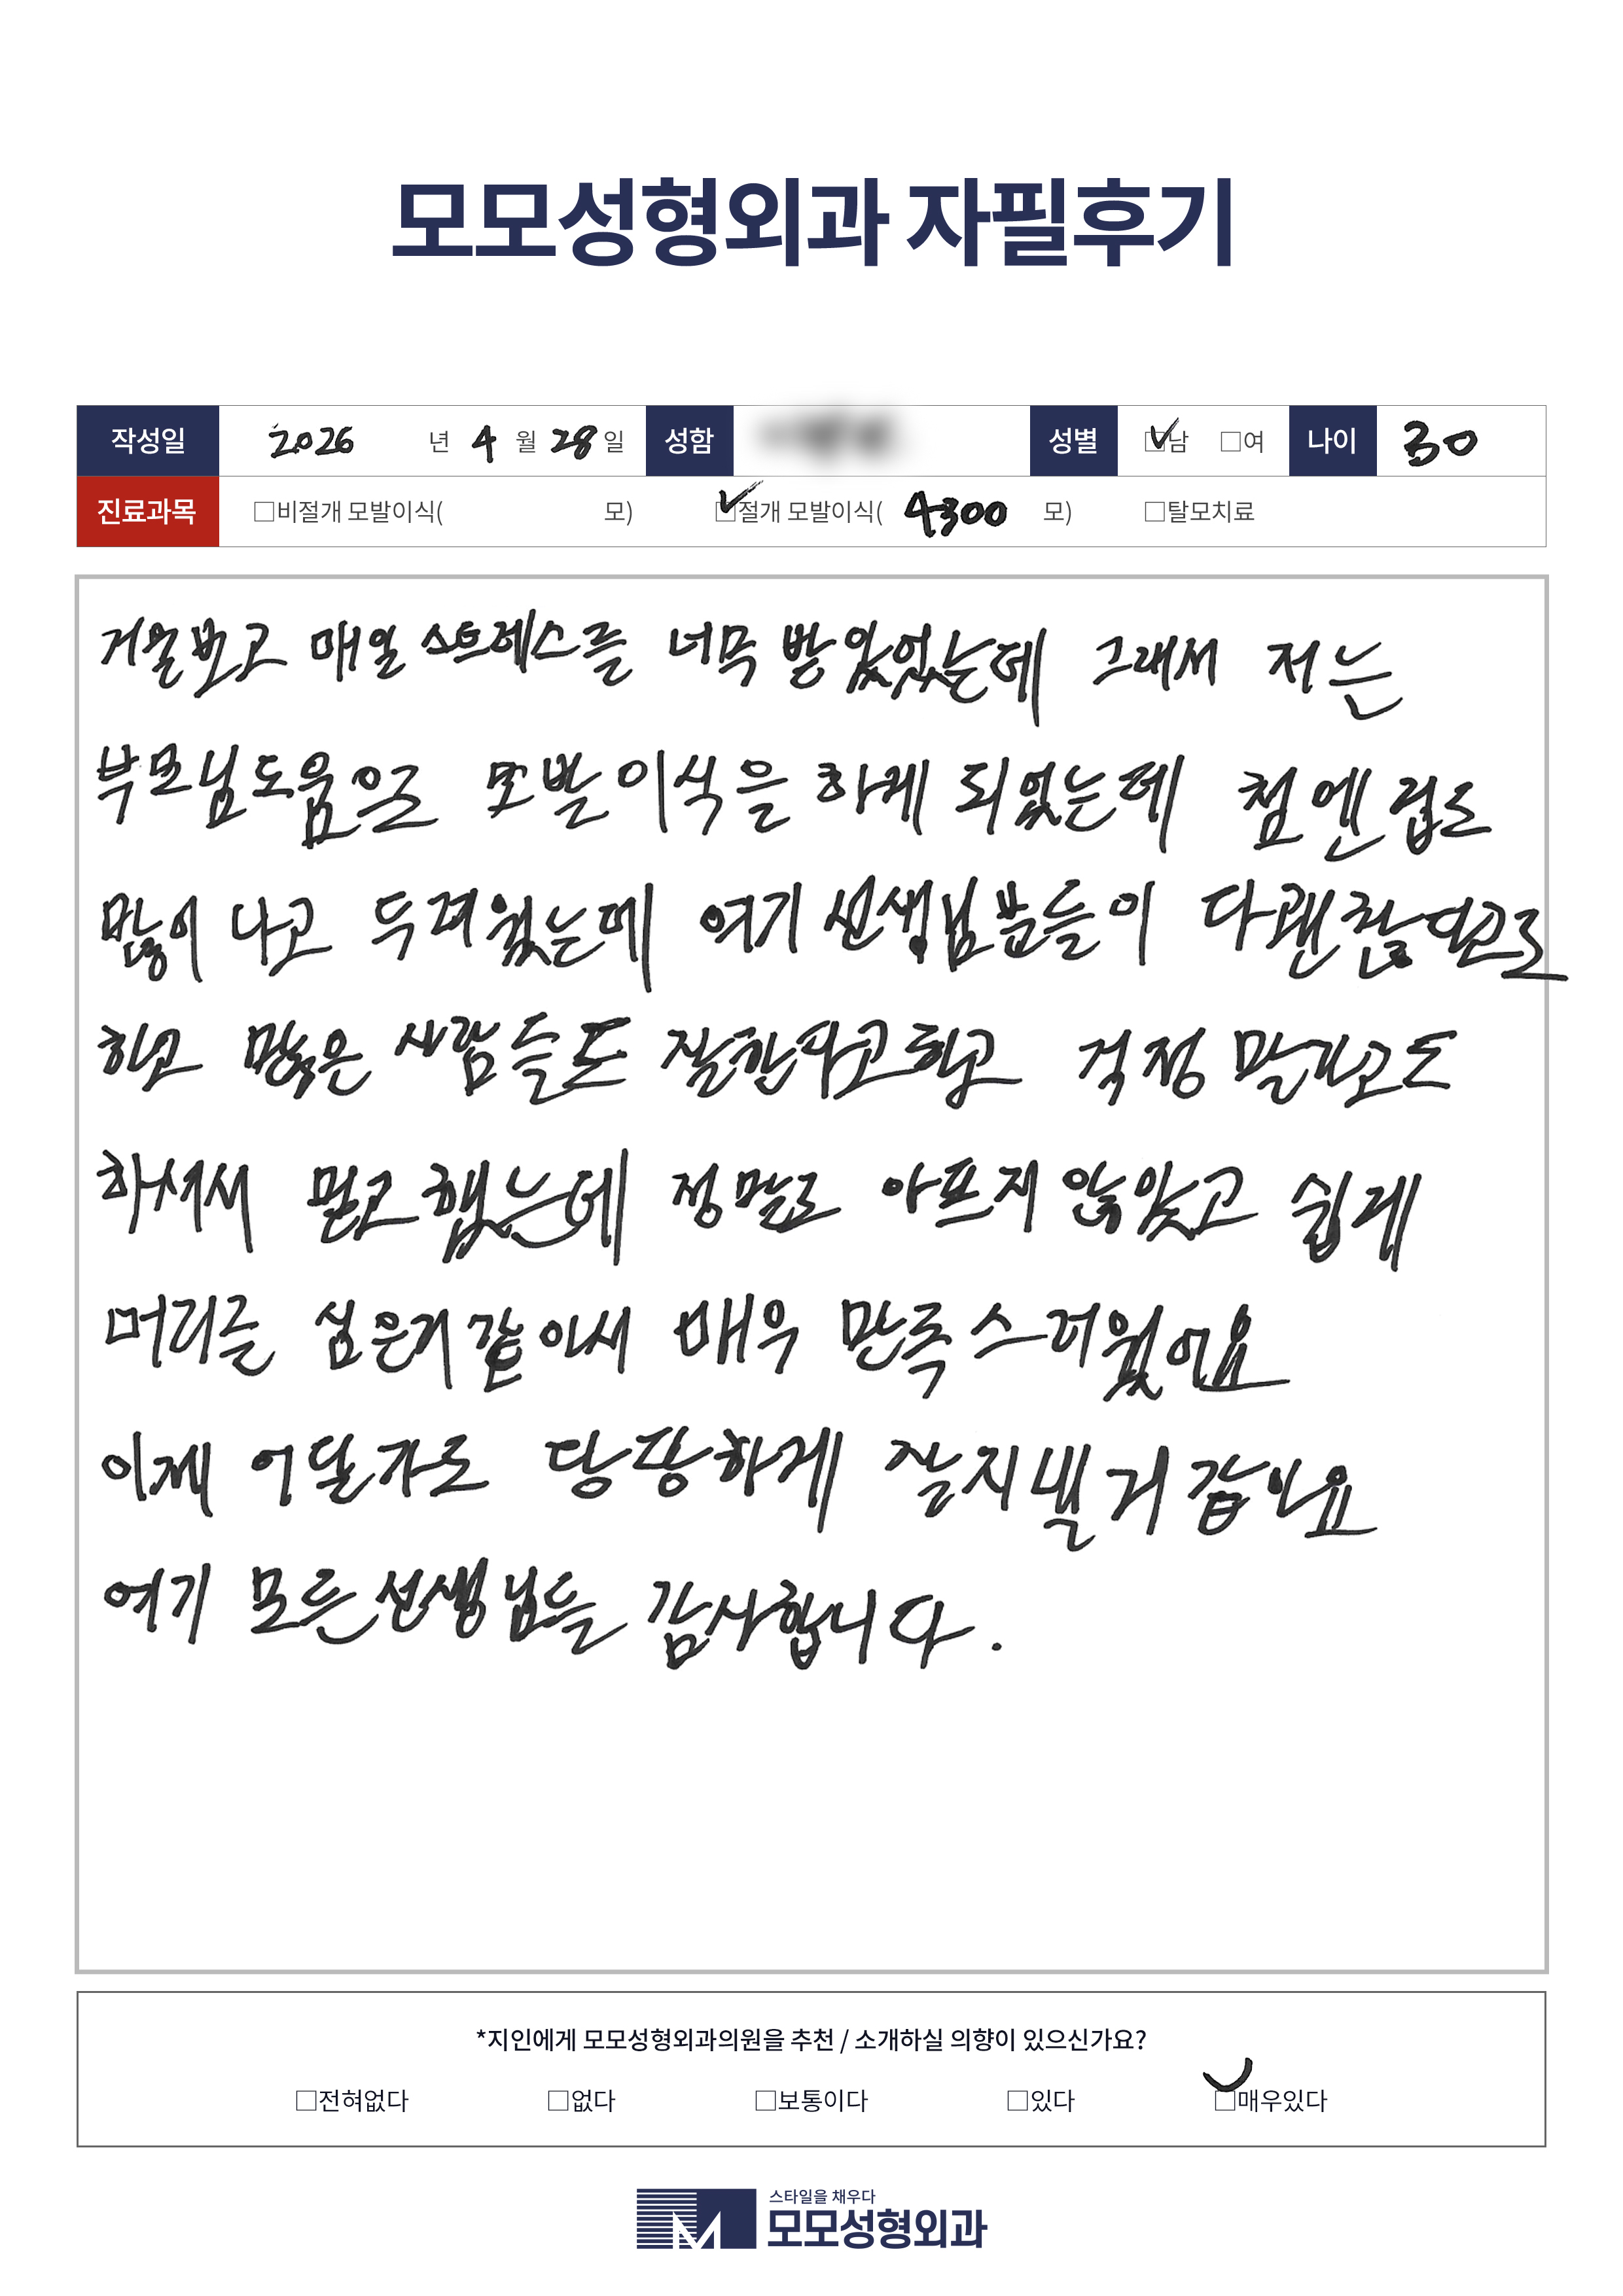 모모성형외과 자필후기
작성일 2026 년 4 월 28 일 성함 성별 ☑남 □여 나이 30
진료과목 □비절개 모발이식( 모) ☑절개 모발이식( 4300 모) □탈모치료
거울보고 매일 스트레스를 너무 받았었는데 그래서 저는
부모님도움으로 모발이식을 하게 되었는데 첨엔 겁도
많이 나고 두려웠는데 여기 선생님분들이 다괜찮다고도
하고 많은 사람들도 잘한다고하고 걱정 말라고도
하셔서 믿고 했는데 정말로 아프지 않았고 쉽게
머리를 심은거 같아서 매우 만족스러웠어요
이제 어딜가도 당당하게 잘지낼거 같아요
여기 모든선생님들 감사합니다.
*지인에게 모모성형외과의원을 추천 / 소개하실 의향이 있으신가요?
□전혀없다 □없다 □보통이다 □있다 ☑매우있다
스타일을 채우다
모모성형외과